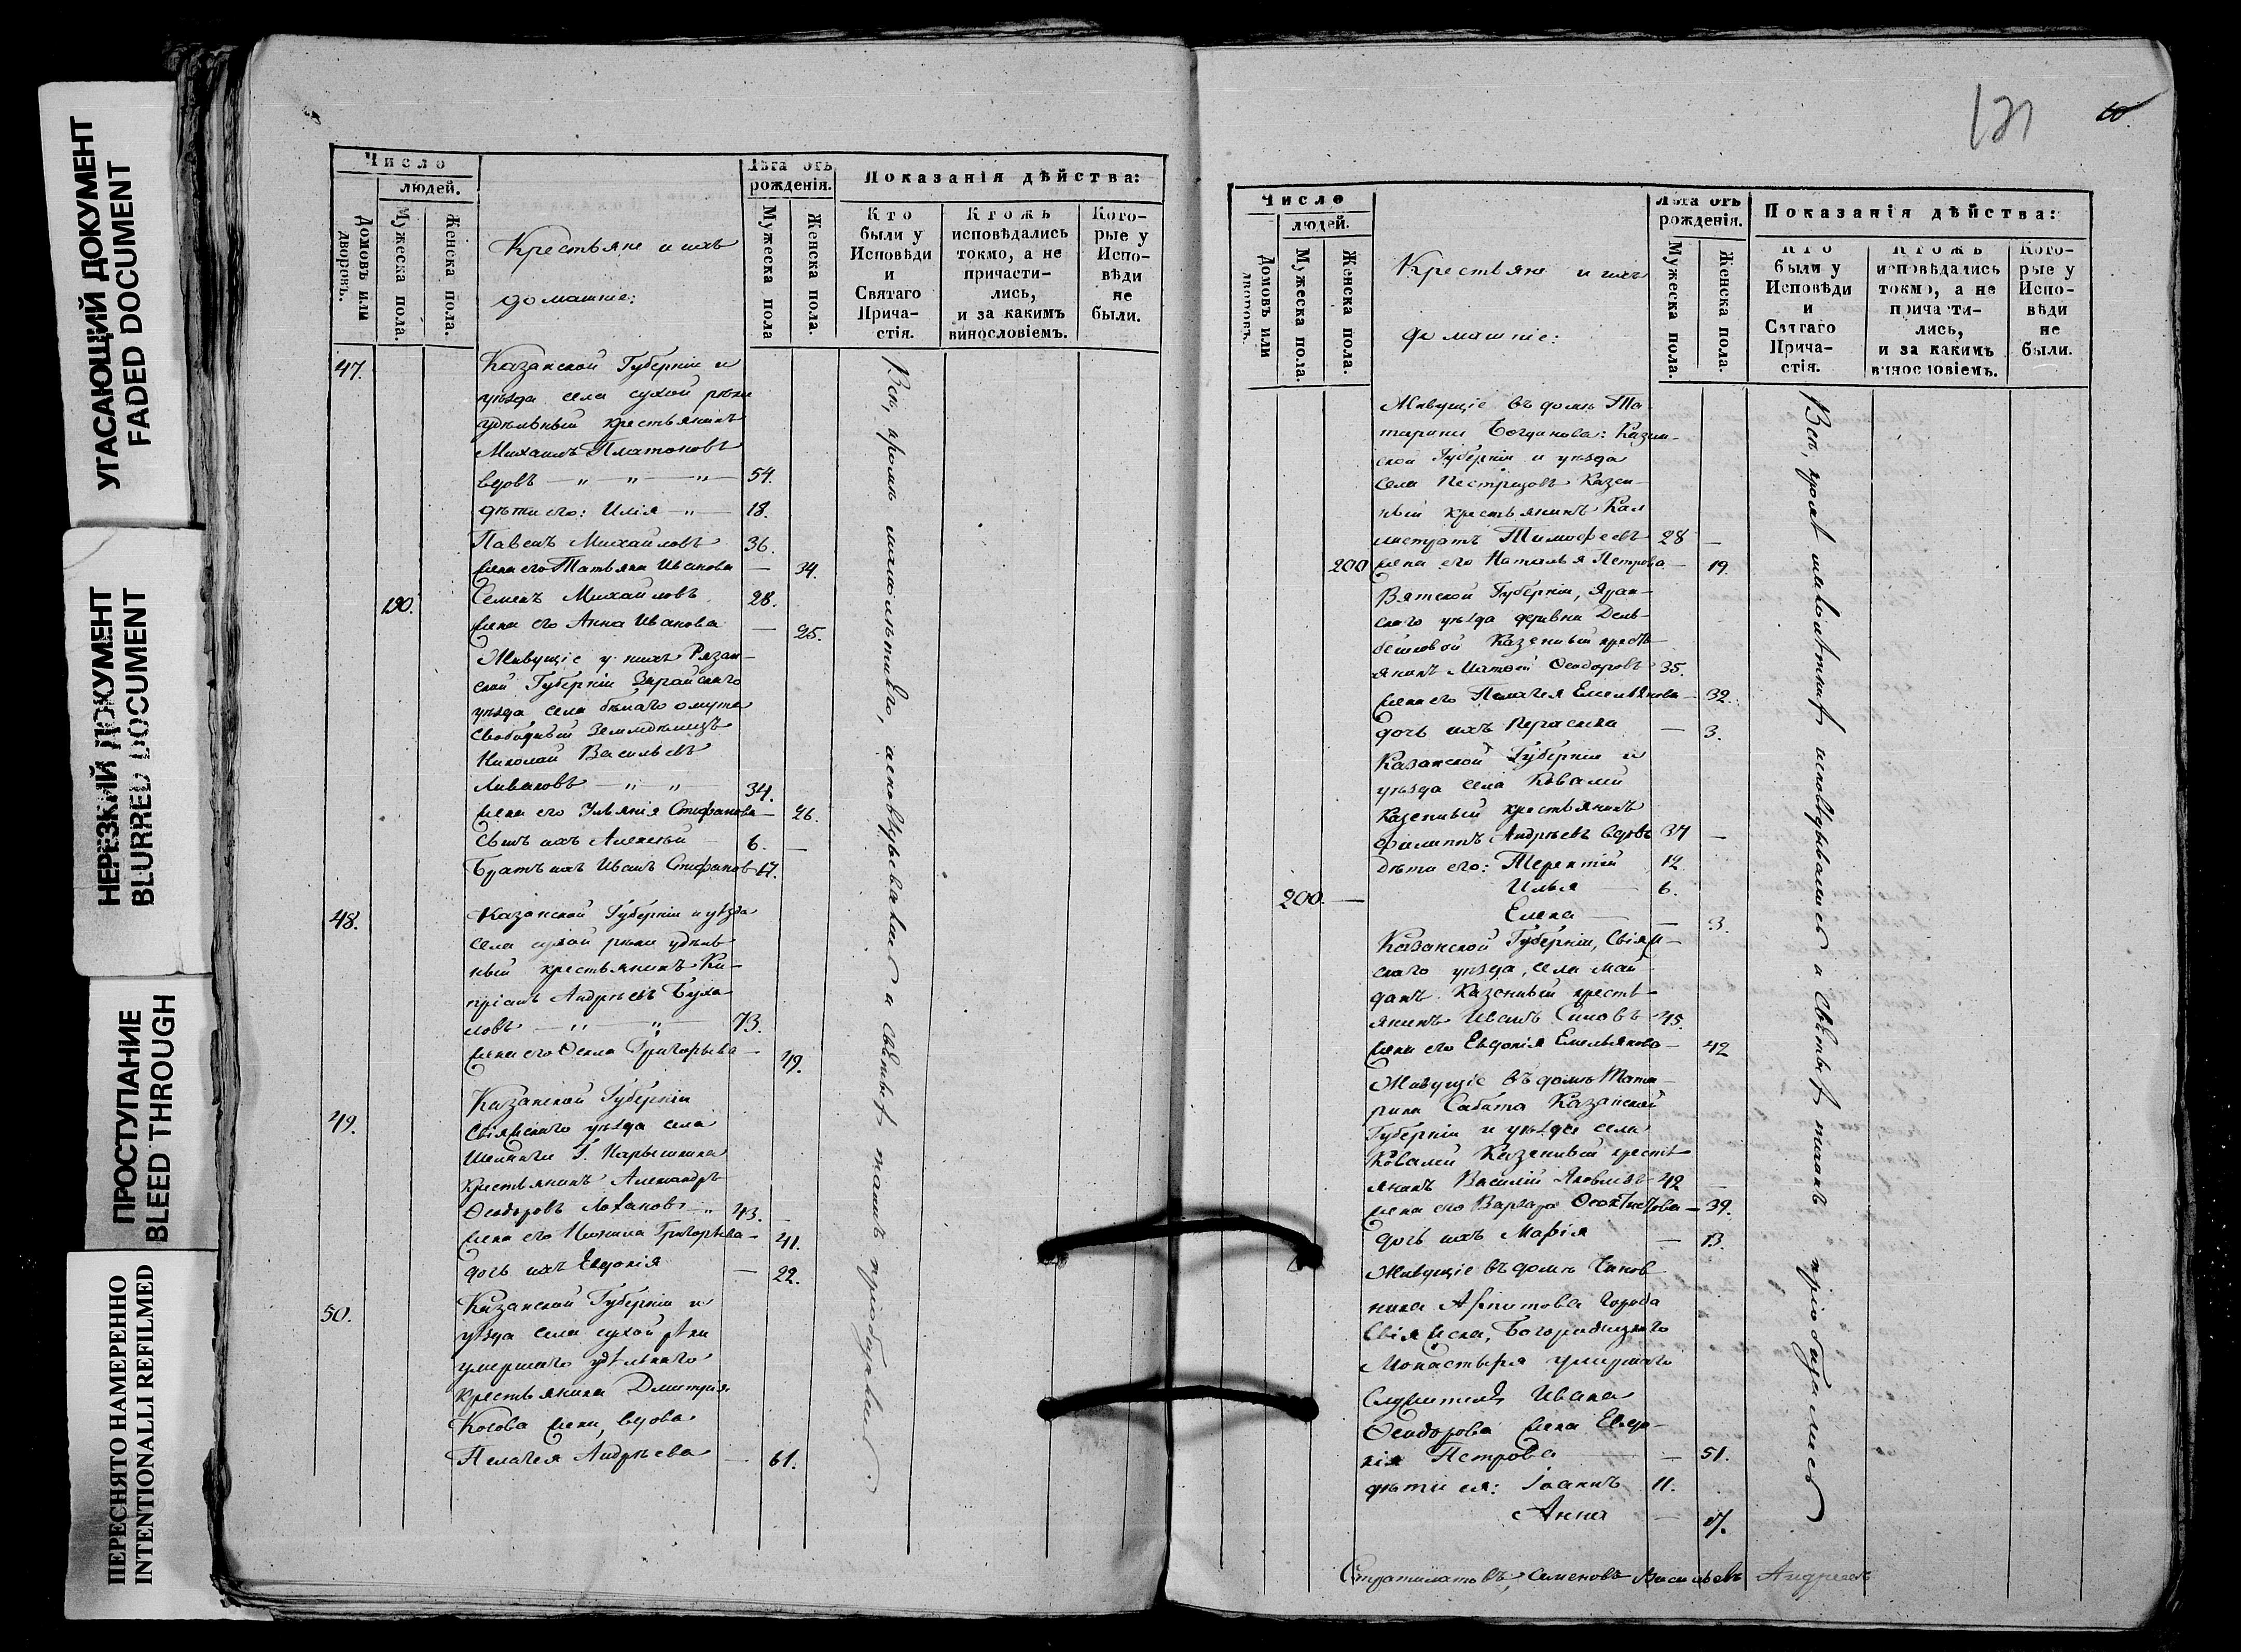 УГАСАЮЩИЙ ДОКУМЕНТ
FADED DOCUMENT
НЕРЕЗКИЙ ДОКУМЕНТ
BLURRED DOCUMENT
ПРОСТУПАНИЕ
BLEED THROUGH
ПЕРЕСНЯТО НАМЕРЕННО
INTENTIONALLI REFILMED
Число
людей.
Домовъ или дворовъ.
Мужеска пола.
Женска пола.
Крестьяне и ихъ
домашніе:
Лѣта отъ
рожденія.
Мужеска пола
Женска пола.
Показанія дѣйства:
Кто
были у
Исповѣди
и
Святаго
Прича-
стія.
Ктожъ
исповѣдались
токмо, а не
причасти-
лись,
и за какимъ
винословіемъ.
Кото-
рые у
Испо-
вѣди
не
были.
47. Казанской Губерніи и
уѣзда села сухой рѣки
удѣльный крестьянинъ
Михаилъ Платоновъ
вдовъ — „ — „ — „ — 54.
дѣти его: Илія — „ — 18.
Павелъ Михайловъ 36.
жена его Татьяна Иванова — 34.
190. Семенъ Михайловъ 28.
жена его Анна Иванова — 25.
Живущіе у нихъ Рязан-
ской Губерніи Зарайскаго
уѣзда села бѣлаго омута
Свободный Земледѣлецъ
Николай Васильевъ
Ливановъ — „ — „ — 34.
жена его Ульянія Стефанова — 26.
Сынъ ихъ Алексѣй — 6. —
Братъ ихъ Иванъ Стефановъ 17.
48. Казанской Губерніи и уѣзда
села сухой рѣки удѣль
ный крестьянинъ Ки-
пріанъ Андреевъ Буха
ловъ — „ — „ — 73.
жена его Ѳекла Григорьева — 49.
Казанской Губерніи
49. Свіяжскаго уѣзда села
Шеланги Г. Нарышкина
крестьянинъ Александръ
Ѳеодоровъ Лохановъ — „ 43. —
жена его Григорьева — 41.
дочь ихъ Евдокія — 22.
50. Казанской Губерніи и
уѣзда села сухой рѣки
умершаго удѣльнаго
крестьянина Дмитрія
Косова жена, вдова
Пелагея Андреева — 61.
Всѣ, кромѣ исповѣдывались и Святыхъ таинъ пріобщались
121
10.
Число
людей.
Домовъ или дворовъ.
Мужеска пола.
Женска пола.
Крестьяне и ихъ
домашніе:
Лѣта отъ
рожденія.
Мужеска пола.
Женска пола.
Показанія дѣйства:
Кто
были у
Исповѣди
и
Святаго
Прича-
стія.
Ктожъ
исповѣдались
токмо, а не
причасти-
лись,
и за какимъ
винословіемъ.
Кото-
рые у
Испо-
вѣди
не
были.
Живущіе въ домѣ Та-
тарина Богданова: Казан-
ской Губерніи и уѣзда
села Пестрецовъ Казен-
ный крестьянинъ Кал
листратъ Тимофеевъ 28 —
200 жена его Наталья Петрова — 19.
Вятской Губерніи, Яран-
скаго уѣзда деревни
Казенный кресть-
янинъ Матѳей Ѳеодоровъ 35.
жена его Пелагея Емельянова — 32.
дочь ихъ Параскева — 3.
Казанской Губерніи и
уѣзда села Ковалей
Казенный крестьянинъ
Филиппъ Андреевъ вдовъ 34 —
дѣти его: Терентій 12
Илья — 6.
200. — Елена — 3.
Казанской Губерніи, Свіяж-
скаго уѣзда, села Май-
данъ Казенный кресть-
янинъ Иванъ 45.
жена его Евдокія Емельянова — 42
Живущіе въ домѣ Тата-
рина Сабита Казанской
Губерніи и уѣзда села
Ковалей Казенный кресть-
янинъ Василій Яковлевъ 42 —
жена его Варвара Ѳеоктистова — 39.
дочь ихъ Марія — 13.
Живущіе въ домѣ Чинов
ника города
Свіяжска, Богородицкаго
Монастыря умершаго
Служителя Ивана
Ѳеодорова жена Евдо-
кія Петрова — 51.
дѣти ея: Іоаннъ 11.
Анна —
Всѣ, кромѣ исповѣдывались и Святыхъ таинъ пріобщались
Стратилатовъ, Семеновъ Васильевъ Андреевъ